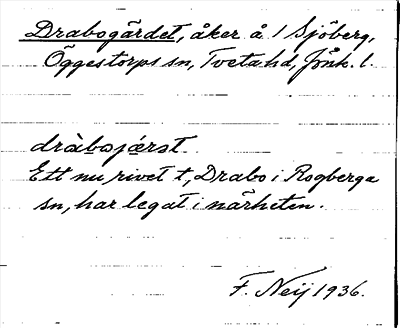 Drabogärdet, åker å 1 Sjöberg,
Öggestorps sn, Tveta hd, Jönk. l.
dràbojǽrst
Ett nu rivet t, Drabo i Rogberga
sn, har legat i närheten.
F. Neij 1936.